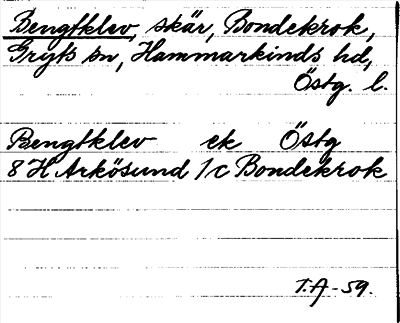 Bengtklev, skär, Bondekrok,
Gryts sn, Hammarkinds hd,
Östg. l.
Bengtklev ek Östg
8 H Arkösund 1/c Bondekrok
T.A-59.